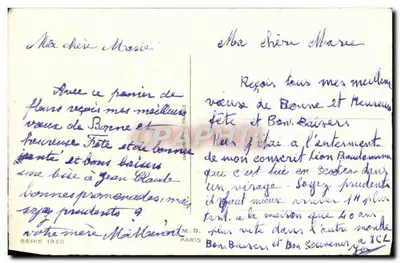 Ma chère Marie
Avec ce panier de
fleurs reçois mes meilleurs
vœux de Bonne et
heureuse Fête et de bonne
santé et bons baisers
une bise à Jean Claude
bonnes promenades, mais
soyez prudents
votre mère
SERIE 1950
M. D.
PARIS
Ma chère Marie
Reçois tous mes meilleurs
vœux de Bonne et Heureuse
fête et Bons Baisers
j'étai a l'enterment
de mon conscrit Léon
que c'est tué en Scooter dans
un virage. Soyez prudents
il vaut mieux arriver 1" plus
tard a la maison que 40 ans
plus vite dans l'autre monde
Bons Baisers et Bon Souvenir